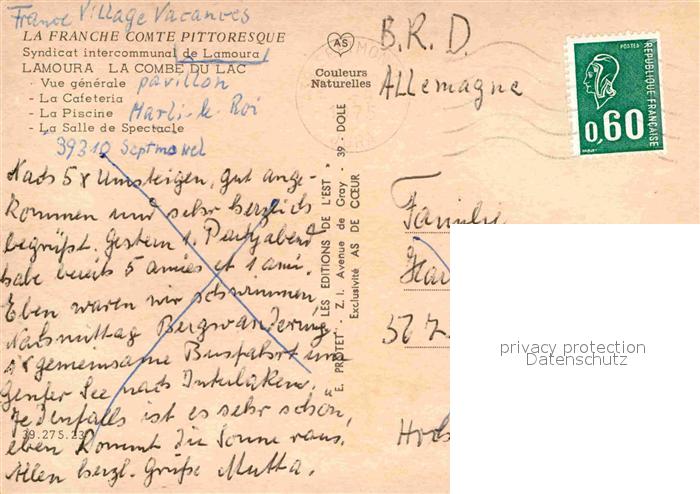 France Village Vacances
LA FRANCHE COMTE PITTORESQUE
Syndicat intercommunal de Lamoura
LAMOURA LA COMBE DU LAC
- Vue générale pavillon
- La Cafeteria
- La Piscine Marli-le-Roi
- La Salle de Spectacle
39310 Septmoncel
Nach 5 x Umsteigen, gut ange-
kommen und sehr herzlich
begrüßt. Gestern 1. Partyabend
habe bereits 5 amies et 1 ami.
Eben waren wir schwimmen,
Nachmittag Bergwanderung,
1 x gemeinsame Busfahrt um
Genfer See nach Interlaken.
Jedenfalls ist es sehr schön,
eben kommt die Sonne raus.
Allen herzl. Grüße Mutta.
39.275.23
AS
Couleurs
Naturelles
"LES EDITIONS DE L'EST"
E. PROTET - Z.I. Avenue de Gray - 39 - DOLE
Exclusivité AS DE CŒUR
B.R.D.
Allemagne
POSTES
REPUBLIQUE FRANÇAISE
0,60
Familie
privacy protection
Datenschutz